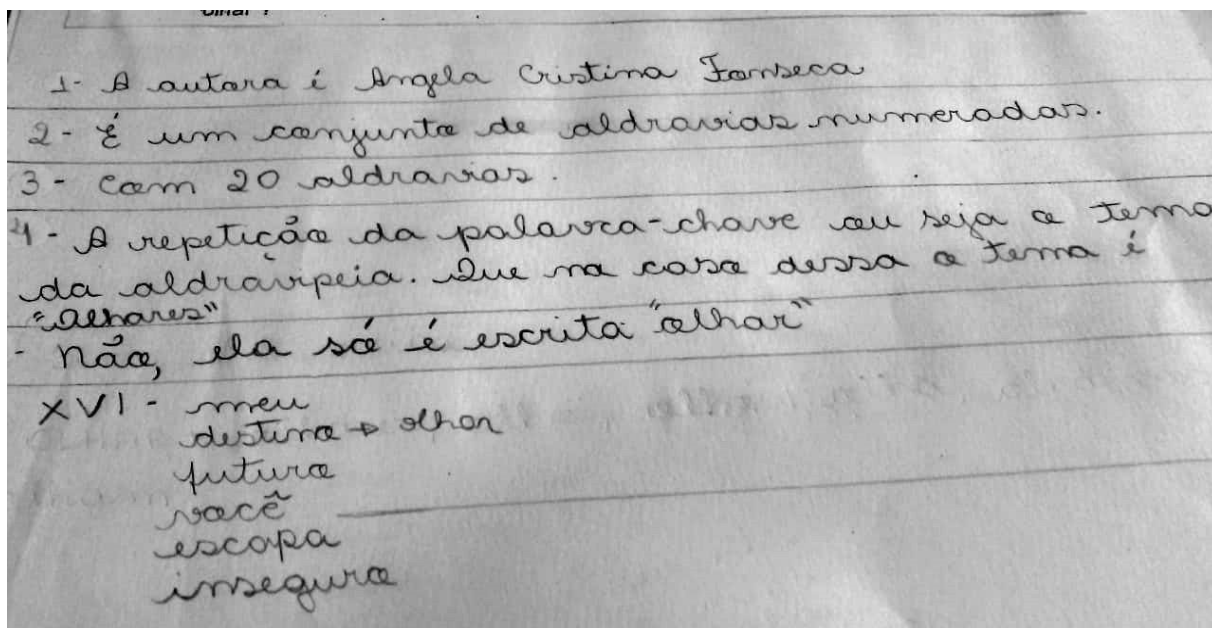 olhar ?
1- A autora é Angela Cristina Fonseca
2- É um conjunto de aldravias numeradas.
3- Com 20 aldravias.
4- A repetição da palavra-chave ou seja o tema
da aldravipeia. Que no caso dessa o tema é
"olhares"
- Não, ela só é escrita "olhar"
XVI- meu
destino → olhar
futuro
você
escapa
inseguro